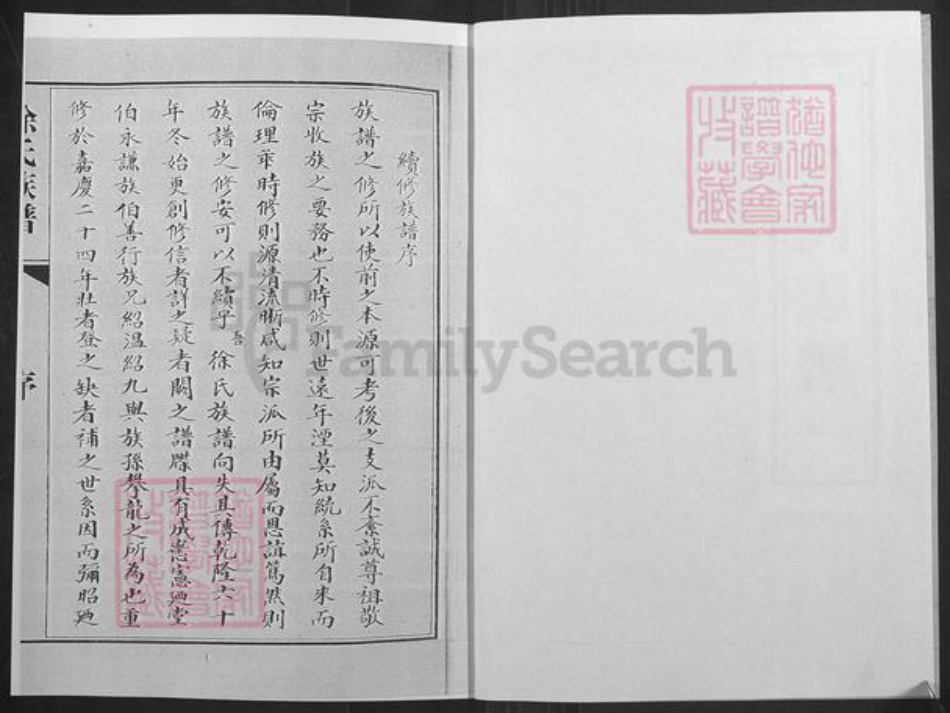 續修族譜序
族譜之修所以使前之本源可考後之支派不紊誠尊祖敬
宗收族之要務也不時修則世遠年湮莫知統系所自來而
倫理乖時修則源清流晰咸知宗派所由屬而恩誼篤然則
族譜之修安可以不續乎吾徐氏族譜向失其傳乾隆六十
年冬始更創修信者詳之疑者闕之譜牒具有成憲迺堂
伯永謙族伯善行族兄紹溫紹九與族孫攀龍之所為也重
修於嘉慶二十四年壯者登之缺者補之世系因而彌昭迺
徐氏族譜
序
譜學會
收藏
FamilySearch